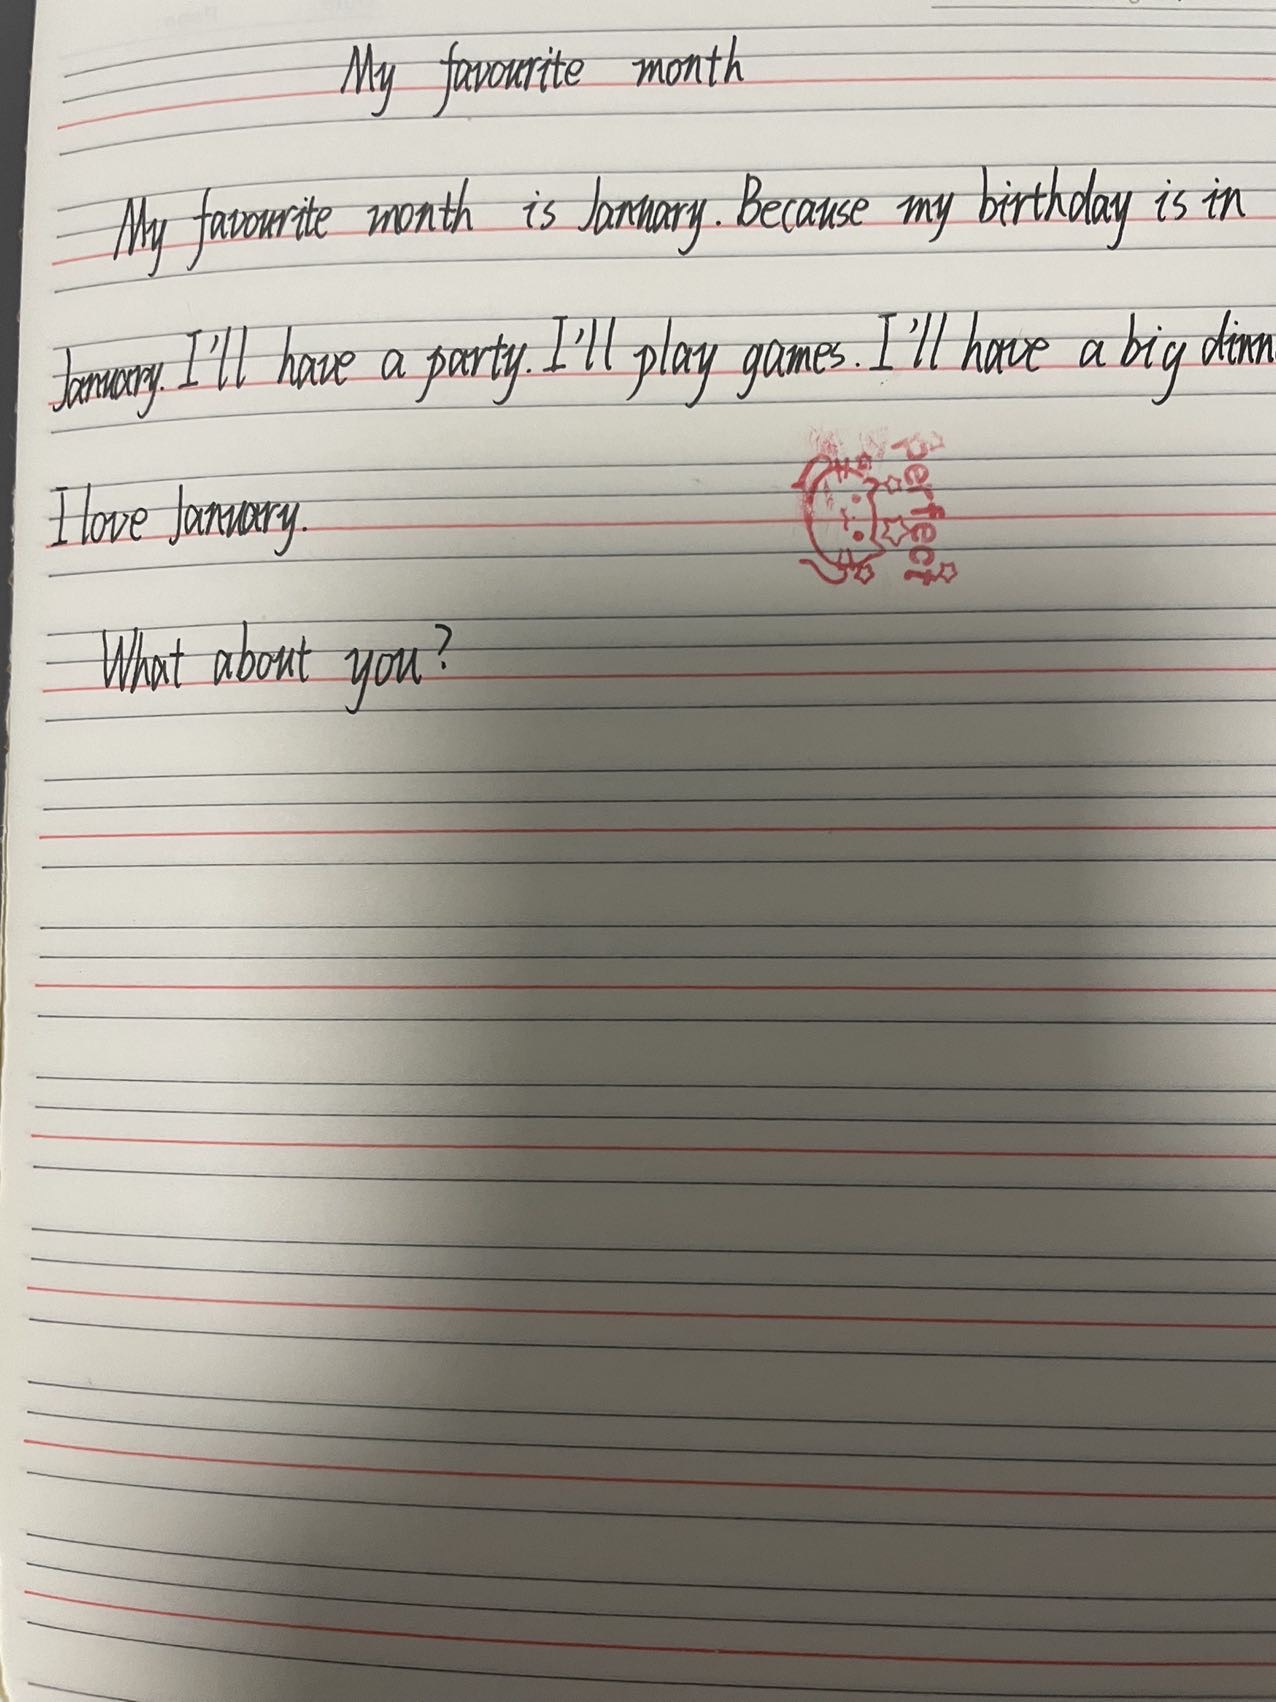 My favourite month
My favourite month is January. Because my birthday is in
January. I'll have a party. I'll play games. I'll have a big dinn
I love January.
Perfect
What about you?